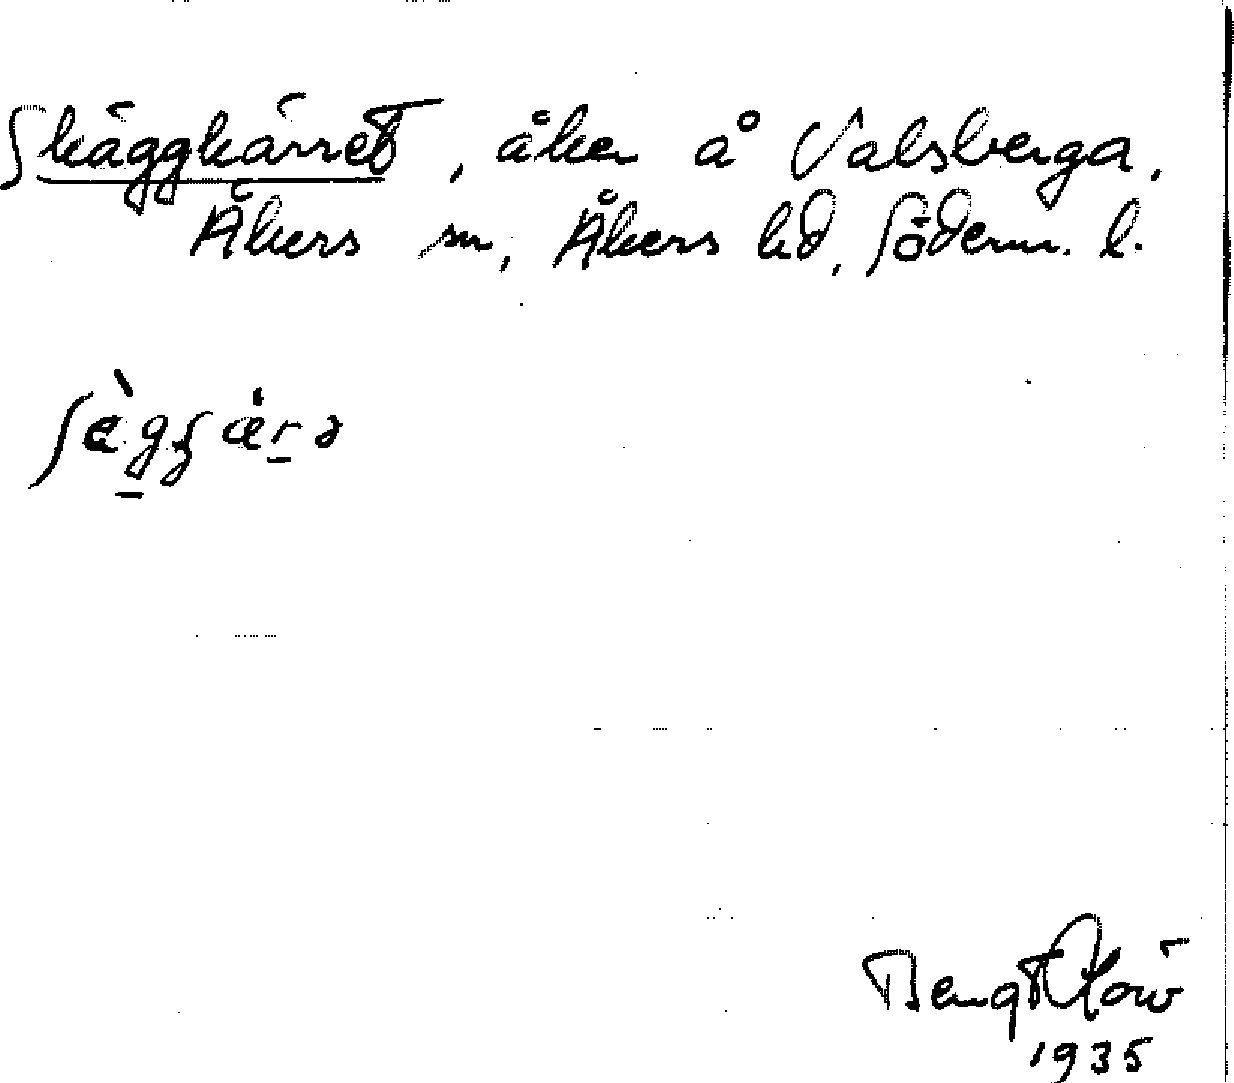 Skäggkärret, åker å Valsberga,
Åkers sn, Åkers hd, Söderm. l.
Bengt
1935